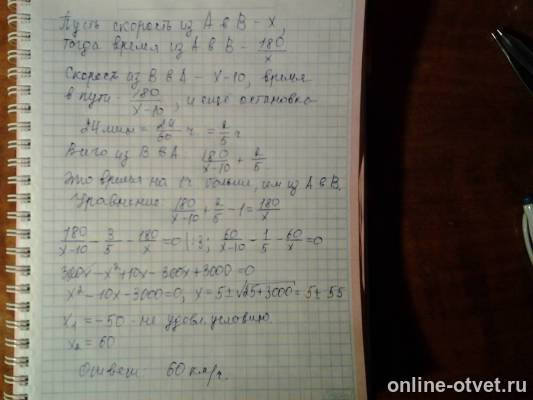 Пусть скорость из А в В – x,
тогда время из А в В – 180/x
Скорость из В в А – x-10, время
в пути 180/x-10, и еще остановка
24 мин = 24/60 ч = 2/5 ч
Всего из В в А 180/x-10 + 2/5
Это время на 1ч больше, чем из А в В.
Уравнение 180/x-10 + 2/5 - 1 = 180/x
180/x-10 - 3/5 - 180/x = 0 |:3; 60/x-10 - 1/5 - 60/x = 0
300x - x² + 10x - 300x + 3000 = 0
x² - 10x - 3000 = 0, x = 5 ± √25+3000 = 5 ± 55
x₁ = -50 - не удовл. условию.
x₂ = 60
Ответ: 60 км/ч.
online-otvet.ru